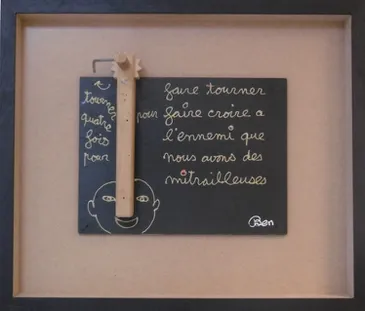 tournez
quatre
fois
pour
pour
faire tourner
faire croire a
l'ennemi que
nous avons des
mitrailleuses
Ben